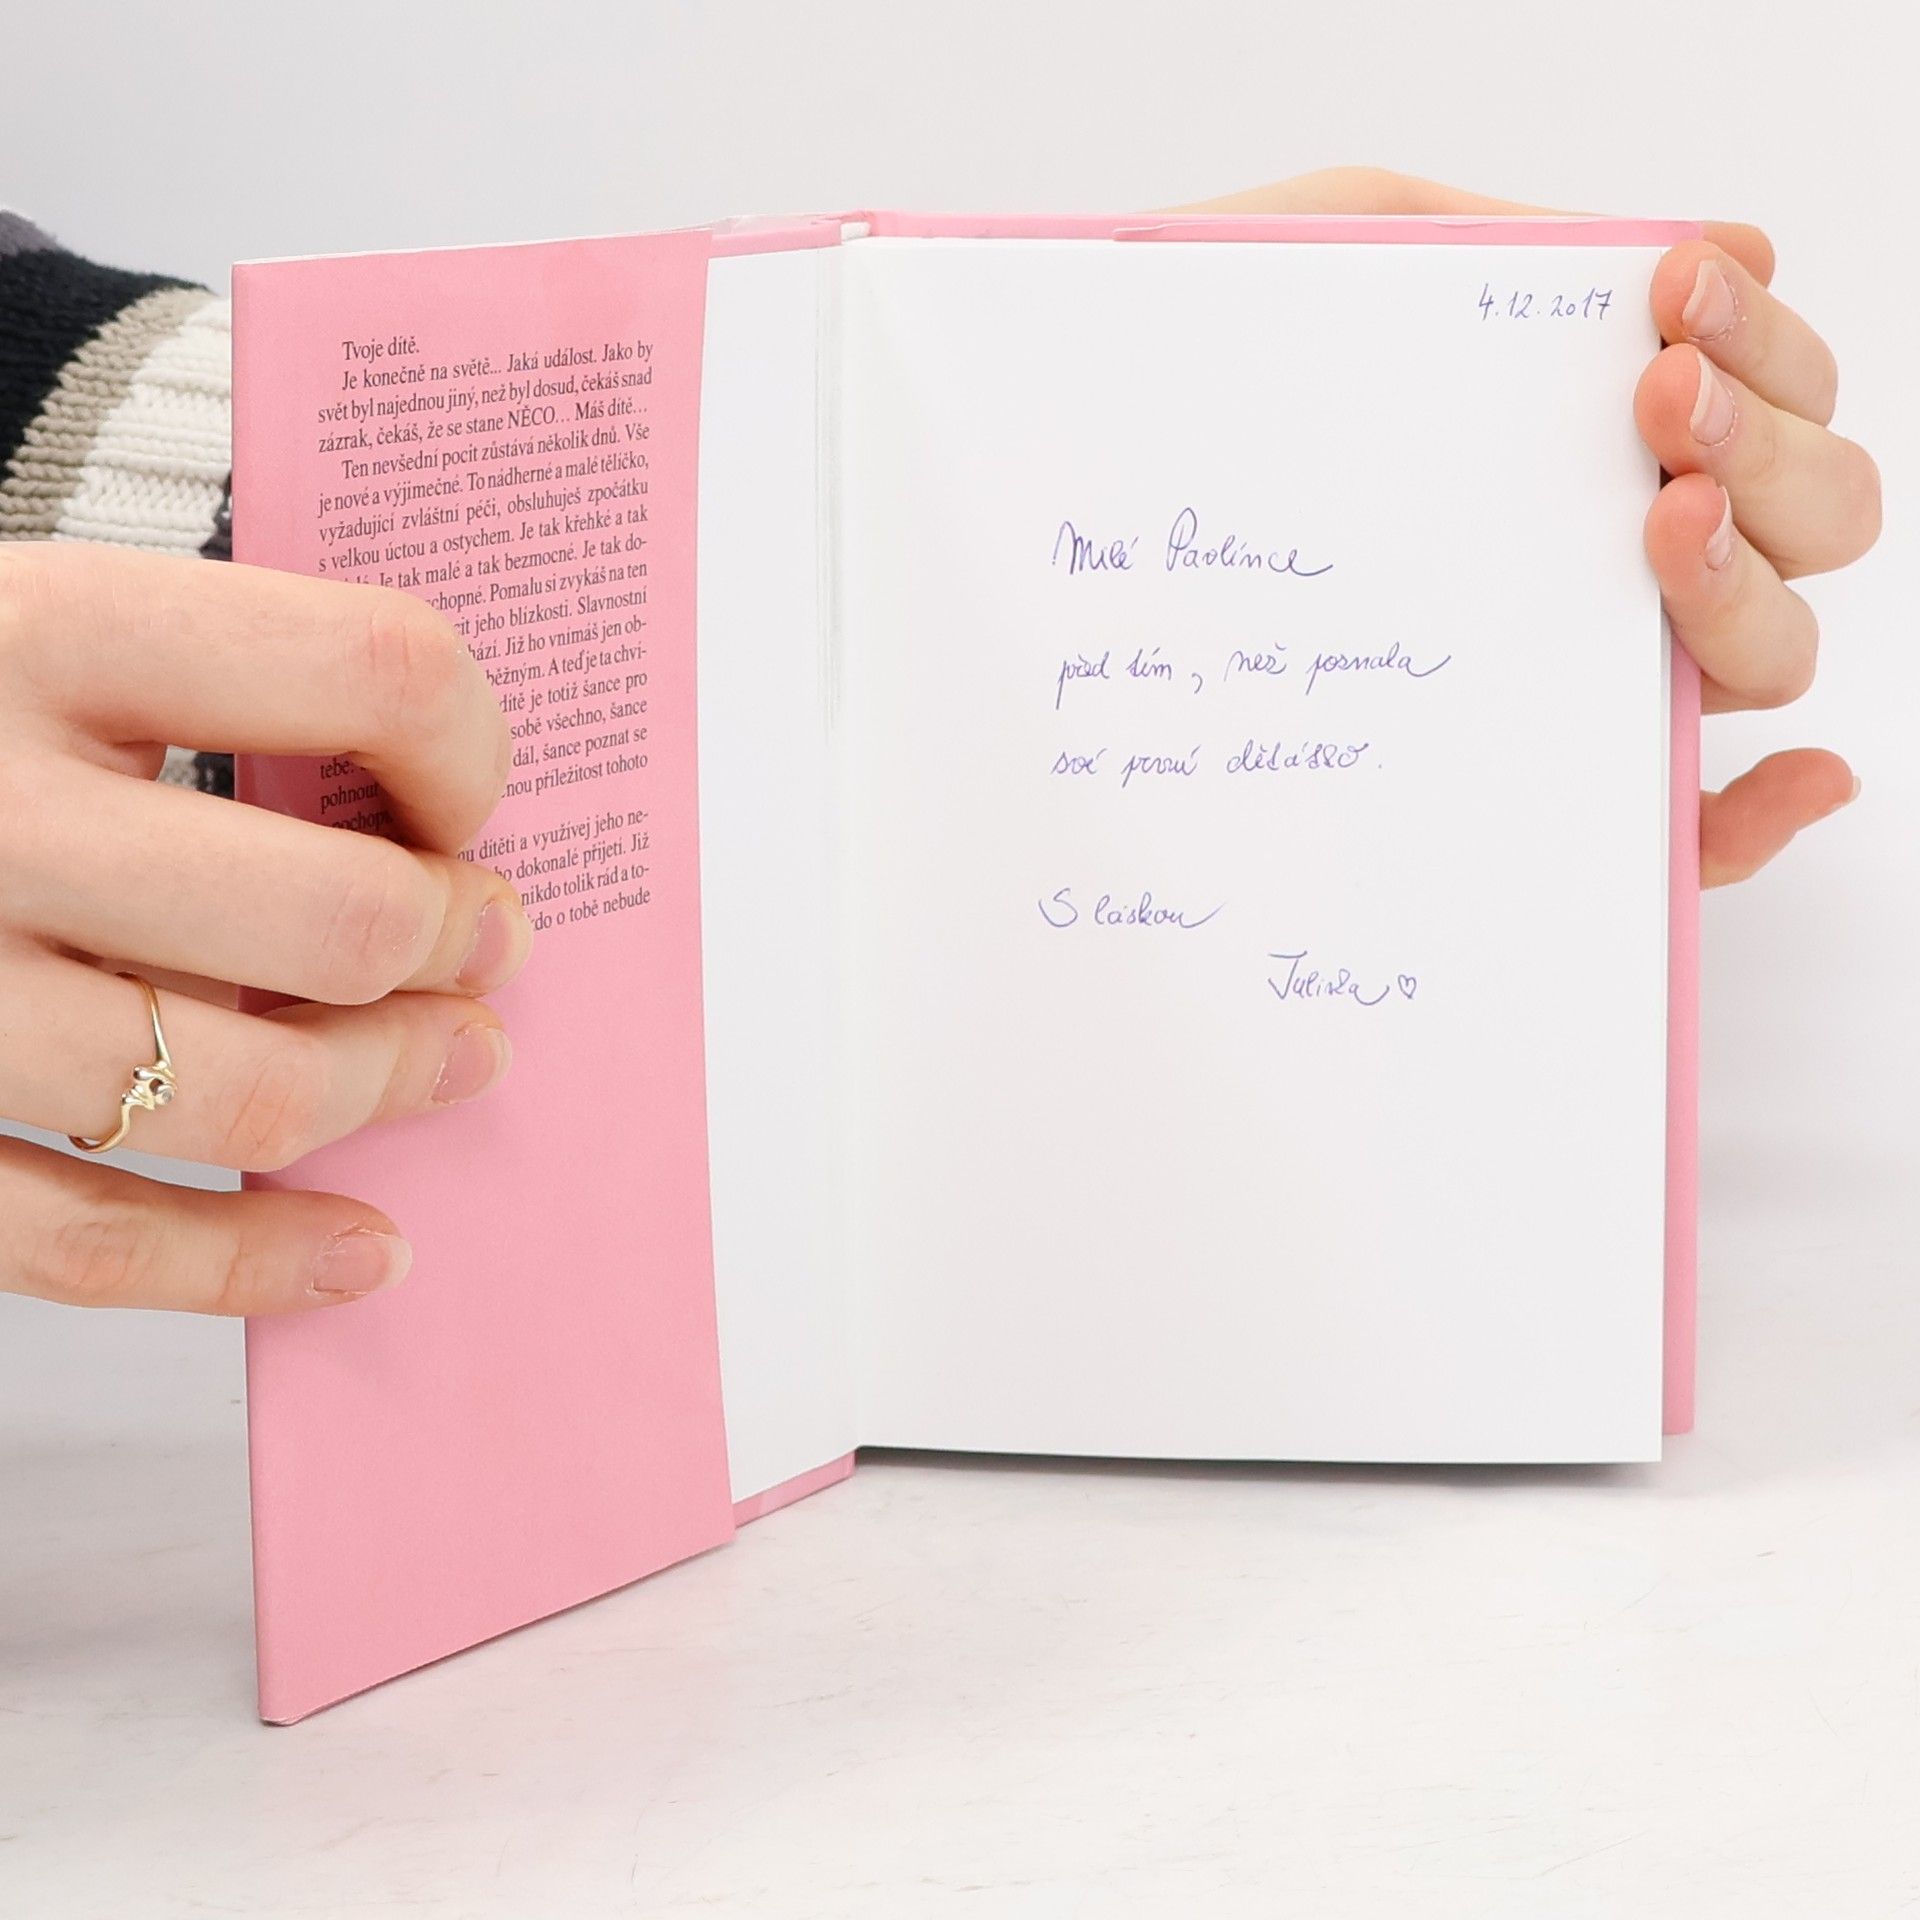 Tvoje dítě.
Je konečně na světě... Jaká událost. Jako by
svět byl najednou jiný, než byl dosud, čekáš snad
zázrak, čekáš, že se stane NĚCO... Máš dítě...
Ten nevšední pocit zůstává několik dnů. Vše
je nové a výjimečné. To nádherné a malé tělíčko,
vyžadující zvláštní péči, obsluhuješ zpočátku
s velkou úctou a ostychem. Je tak křehké a tak
Je tak malé a tak bezmocné. Je tak do-
Pomalu si zvykáš na ten
jeho blízkosti. Slavnostní
Již ho vnímáš jen ob-
běžným. A teď je ta chví-
dítě je totiž šance pro
sobě všechno, šance
tebe.
dál, šance poznat se
pohnout
příležitost tohoto
dítěti a využívej jeho ne-
dokonalé přijetí. Již
nikdo tolik rád a to-
o tobě nebude
4.12.2017
Milé Pavlínce
před tím, než poznala
své první děťátko.
S láskou
Juliska ♡